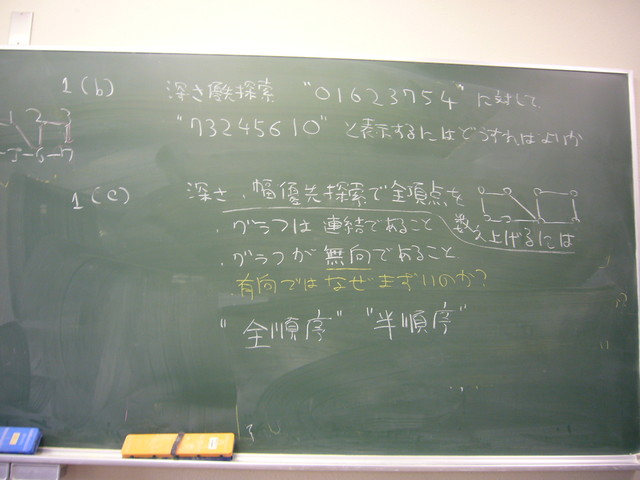 1(b) 深さ優先探索 "01623754" に対して、
"73245610" と表示するにはどうすればよいか
2 3
5-6-7
1(c) 深さ、幅優先探索で全頂点を
数え上げるには
・グラフは連結であること
・グラフが無向であること
有向ではなぜまずいのか?
"全順序" "半順序"